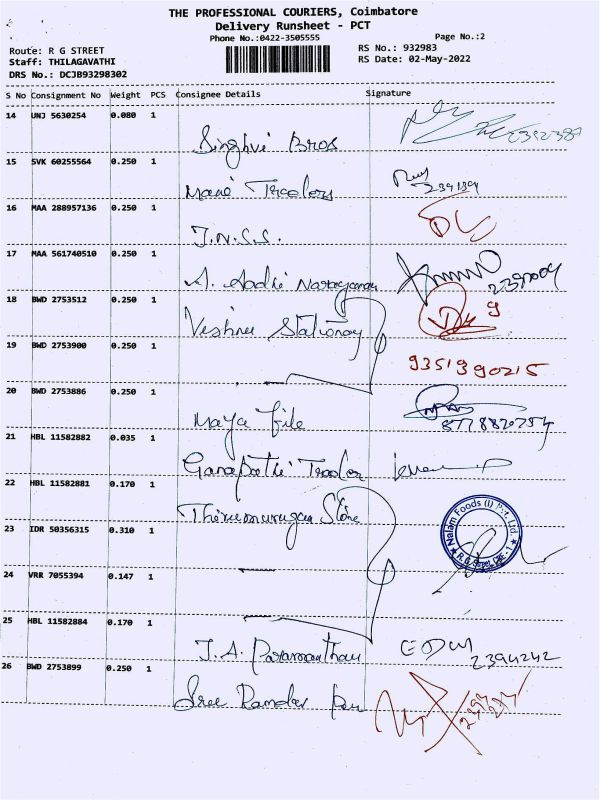 THE PROFESSIONAL COURIERS, Coimbatore
Delivery Runsheet - PCT
Phone No.:0422-3505555
Page No.:2
Route: R G STREET
RS No.: 932983
Staff: THILAGAVATHI
RS Date: 02-May-2022
DRS No.: DCJB93298302
S No Consignment No Weight PCS Consignee Details Signature
14 UNJ 5630254 0.080 1
Singhvi Bros
15 SVK 60255564 0.250 1
239139
16 MAA 288957136 0.250 1
J.N.S.S.
17 MAA 561740510 0.250 1
A. Aadhi Narayanan
18 BWD 2753512 0.250 1
Vishnu Stationary
19 BWD 2753900 0.250 1
9351990215
20 BWD 2753886 0.250 1
Maya File
21 HBL 11582882 0.035 1
Ganapathi
22 HBL 11582881 0.170 1
Thirumurugan Store
Nalam Foods (I) Pvt. Ltd.
23 IDR 50356315 0.310 1
24 VRR 7055394 0.147 1
25 HBL 11582884 0.170 1
J.A.
2394242
26 BWD 2753899 0.250 1
Sree Ramdev